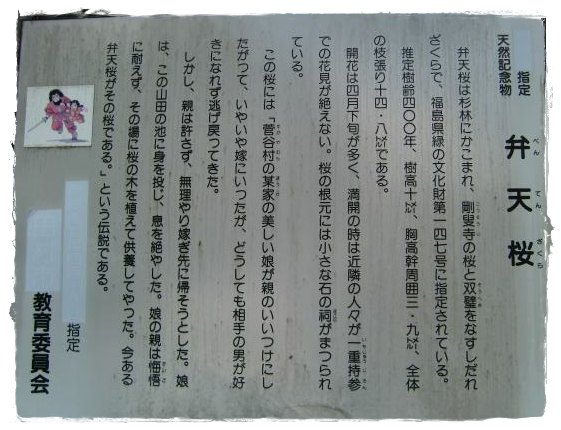 指定
天然記念物
弁天桜
べんてんざくら
弁天桜は杉林にかこまれ、剛叟寺の桜と双璧をなすしだれ
ざくらで、福島県緑の文化財第一四七号に指定されている。
推定樹齢四〇〇年、樹高十㍍、胸高幹周囲三・九㍍、全体
の枝張り十四・八㍍である。
開花は四月下旬が多く、満開の時は近隣の人々が一重持参
での花見が絶えない。桜の根元には小さな石の祠がまつられ
ている。
この桜には「菅谷村の某家の美しい娘が親のいいつけにし
たがつて、いやいや嫁にいつたが、どうしても相手の男が好
きになれず逃げ戻つてきた。
しかし、親は許さず、無理やり嫁ぎ先に帰そうとした。娘
は、この山田の池に身を投じ、息を絶やした。娘の親は悔悟
に耐えず、その場に桜の木を植えて供養してやつた。今ある
弁天桜がその桜である。」という伝説である。
指定
教育委員会